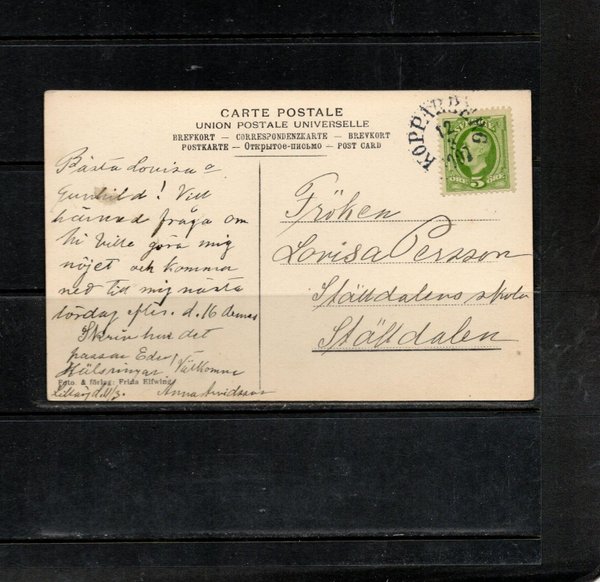 CARTE POSTALE
UNION POSTALE UNIVERSELLE
BREFKORT — CORRESPONDENZKARTE — BREVKORT
POSTKARTE — Открытое-письмо — POST CARD
KOPPARBERG
ÖRE 5 ÖRE
Bästa Lovisa o
Gunhild! Vill
härmed fråga om
Ni ville göra mig
nöjet och komma
ned till mig nästa
lördag efter. d. 16 dennes
Skriv hur det
passar Eder,
Hälsningar, Välkomna
Foto. & förlag: Frida Elfwing
Anna Arvidsson
Fröken
Lovisa Persson
Ställdalens skola
Ställdalen